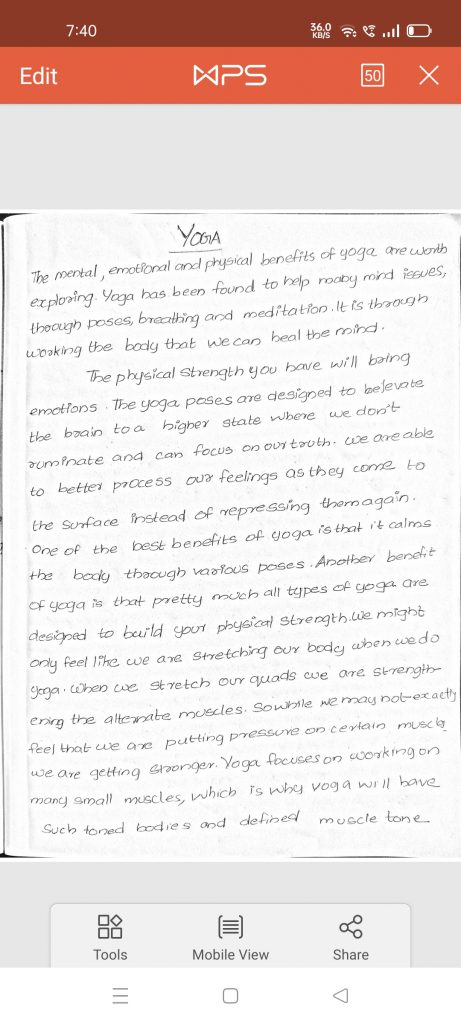 7:40
36.0
KB/S
Edit
WPS
50
YOGA
The mental, emotional and physical benefits of yoga are worth
exploring. Yoga has been found to help many mind issues,
through poses, breathing and meditation. It is through
working the body that we can heal the mind.
The physical strength you have will bring
emotions. The yoga poses are designed to belevate
the brain to a higher state where we don't
ruminate and can focus on our truth. we are able
to better process our feelings as they come to
the surface instead of repressing them again.
One of the best benefits of yoga is that it calms
the body through various poses. Another benefit
of yoga is that pretty much all types of yoga are
designed to build your physical strength. We might
only feel like we are stretching our body when we do
yoga. When we stretch our quads we are strength-
ening the alternate muscles. So while we may not exactly
feel that we are putting pressure on certain muscle
we are getting stronger. Yoga focuses on working on
many small muscles, which is why yoga will have
such toned bodies and defined muscle tone
Tools
Mobile View
Share